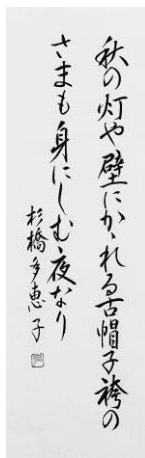 秋の灯や壁にかゝれる古帽子袴の
さまも身にしむ夜なり
杉橋多恵子